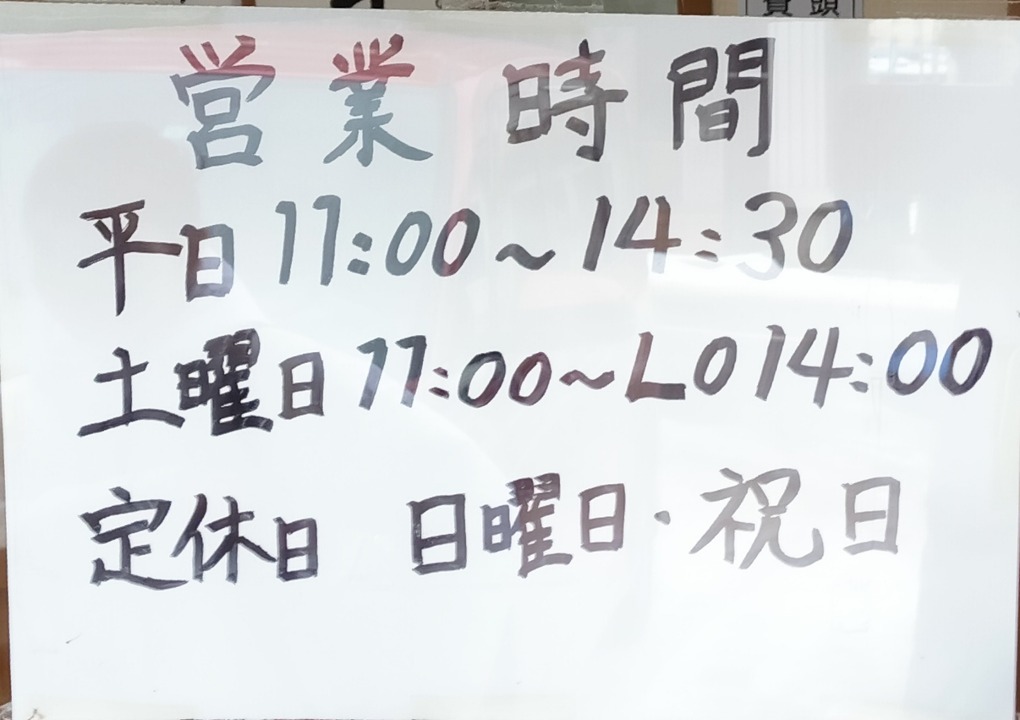 営業時間
平日11:00～14:30
土曜日11:00～LO14:00
定休日 日曜日・祝日